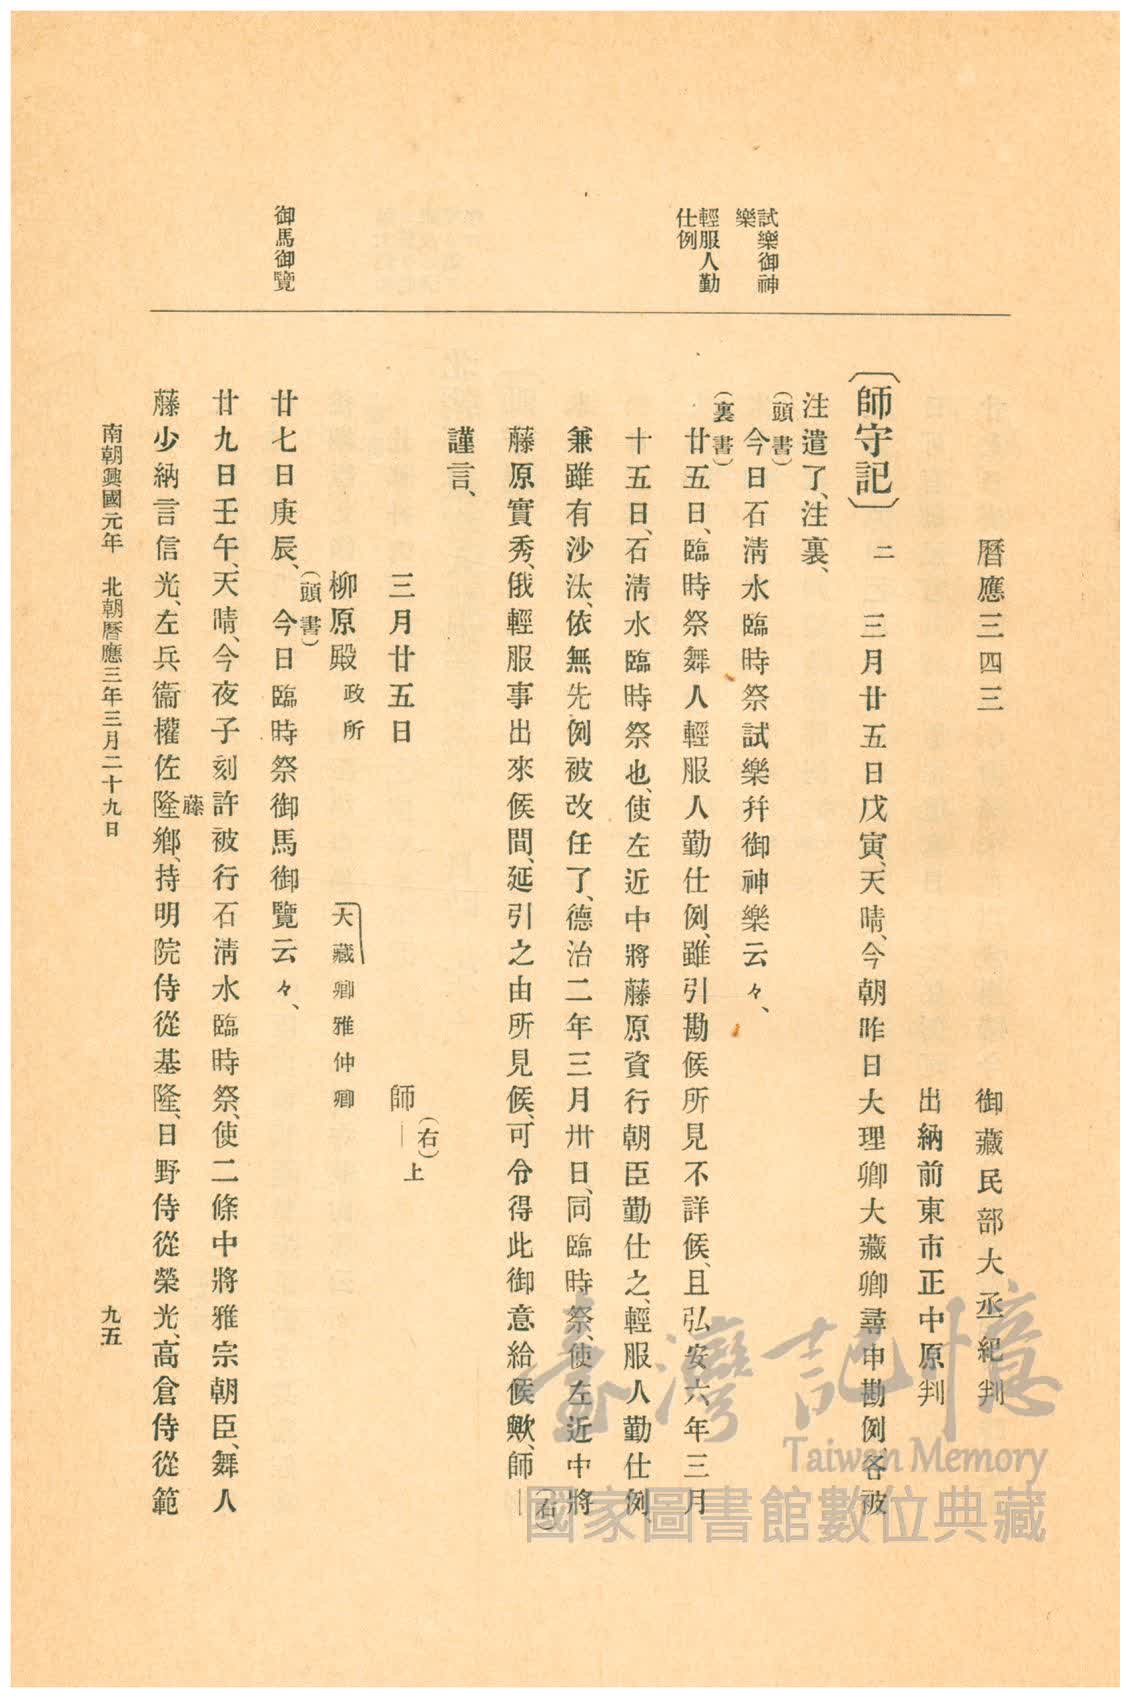 試樂御神
樂
輕服人勤
仕例
御馬御覽
曆應三四三　御藏民部大丞紀判
出納前東市正中原判
〔師守記〕　二　三月廿五日戊寅、天晴、今朝昨日大理卿大藏卿尋申勘例、各被
注遣了、注裏、
(頭書)
今日石淸水臨時祭試樂幷御神樂云々、
(裏書)
廿五日、臨時祭舞人輕服人勤仕例、雖引勘候所見不詳候、且弘安六年三月
十五日、石淸水臨時祭也、使左近中將藤原資行朝臣勤仕之、輕服人勤仕例、
兼雖有沙汰、依無先例被改任了、德治二年三月卅日、同臨時祭、使左近中將
藤原實秀、俄輕服事出來候間、延引之由所見候、可令得此御意給候歟、師—
(右)
謹言、
三月廿五日　師—上
(右)
柳原殿政所　大藏卿雅仲卿
(頭書)
廿七日庚辰、今日臨時祭御馬御覽云々、
廿九日壬午、天晴、今夜子刻許被行石淸水臨時祭、使二條中將雅宗朝臣、舞人
藤
藤少納言信光、左兵衞權佐隆鄕、持明院侍從基隆、日野侍從榮光、高倉侍從範
南朝興國元年　北朝曆應三年三月二十九日
九五
臺灣記憶
Taiwan Memory
國家圖書館數位典藏